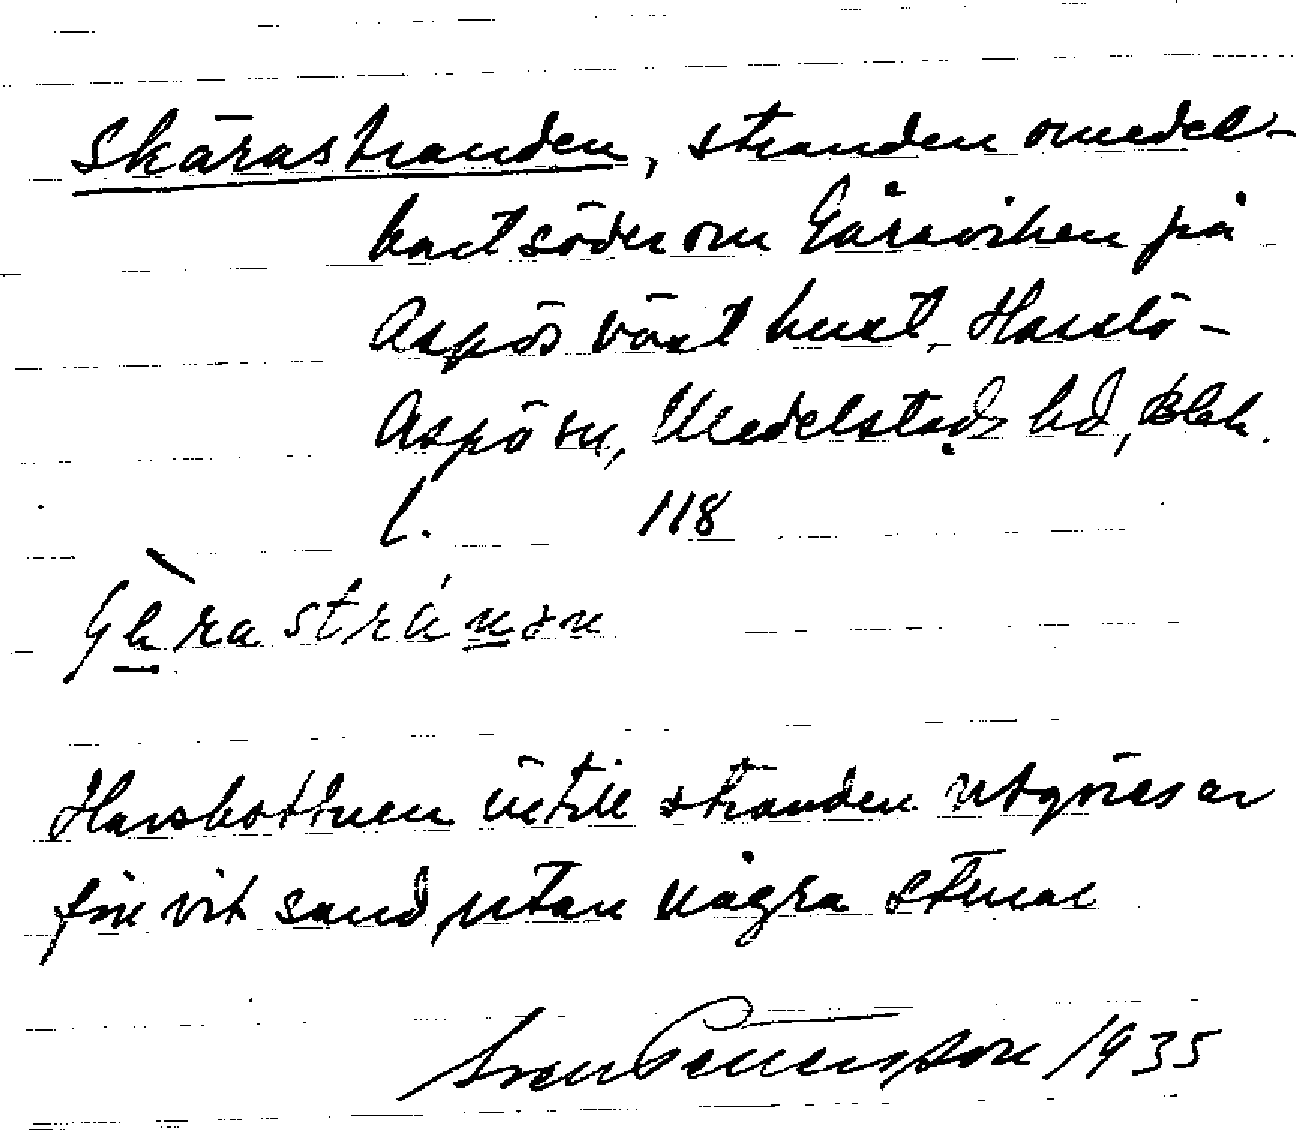 Skärastranden, stranden omedel-
bart söder om Gåraviken på
Aspös väst kust, Hasslö-
Aspö sn, Medelstads hd, Blek.
l. 118
Havsbottnen intill stranden utgöres av
fin vit sand, utan några stenar
Sven Pettersson 1935